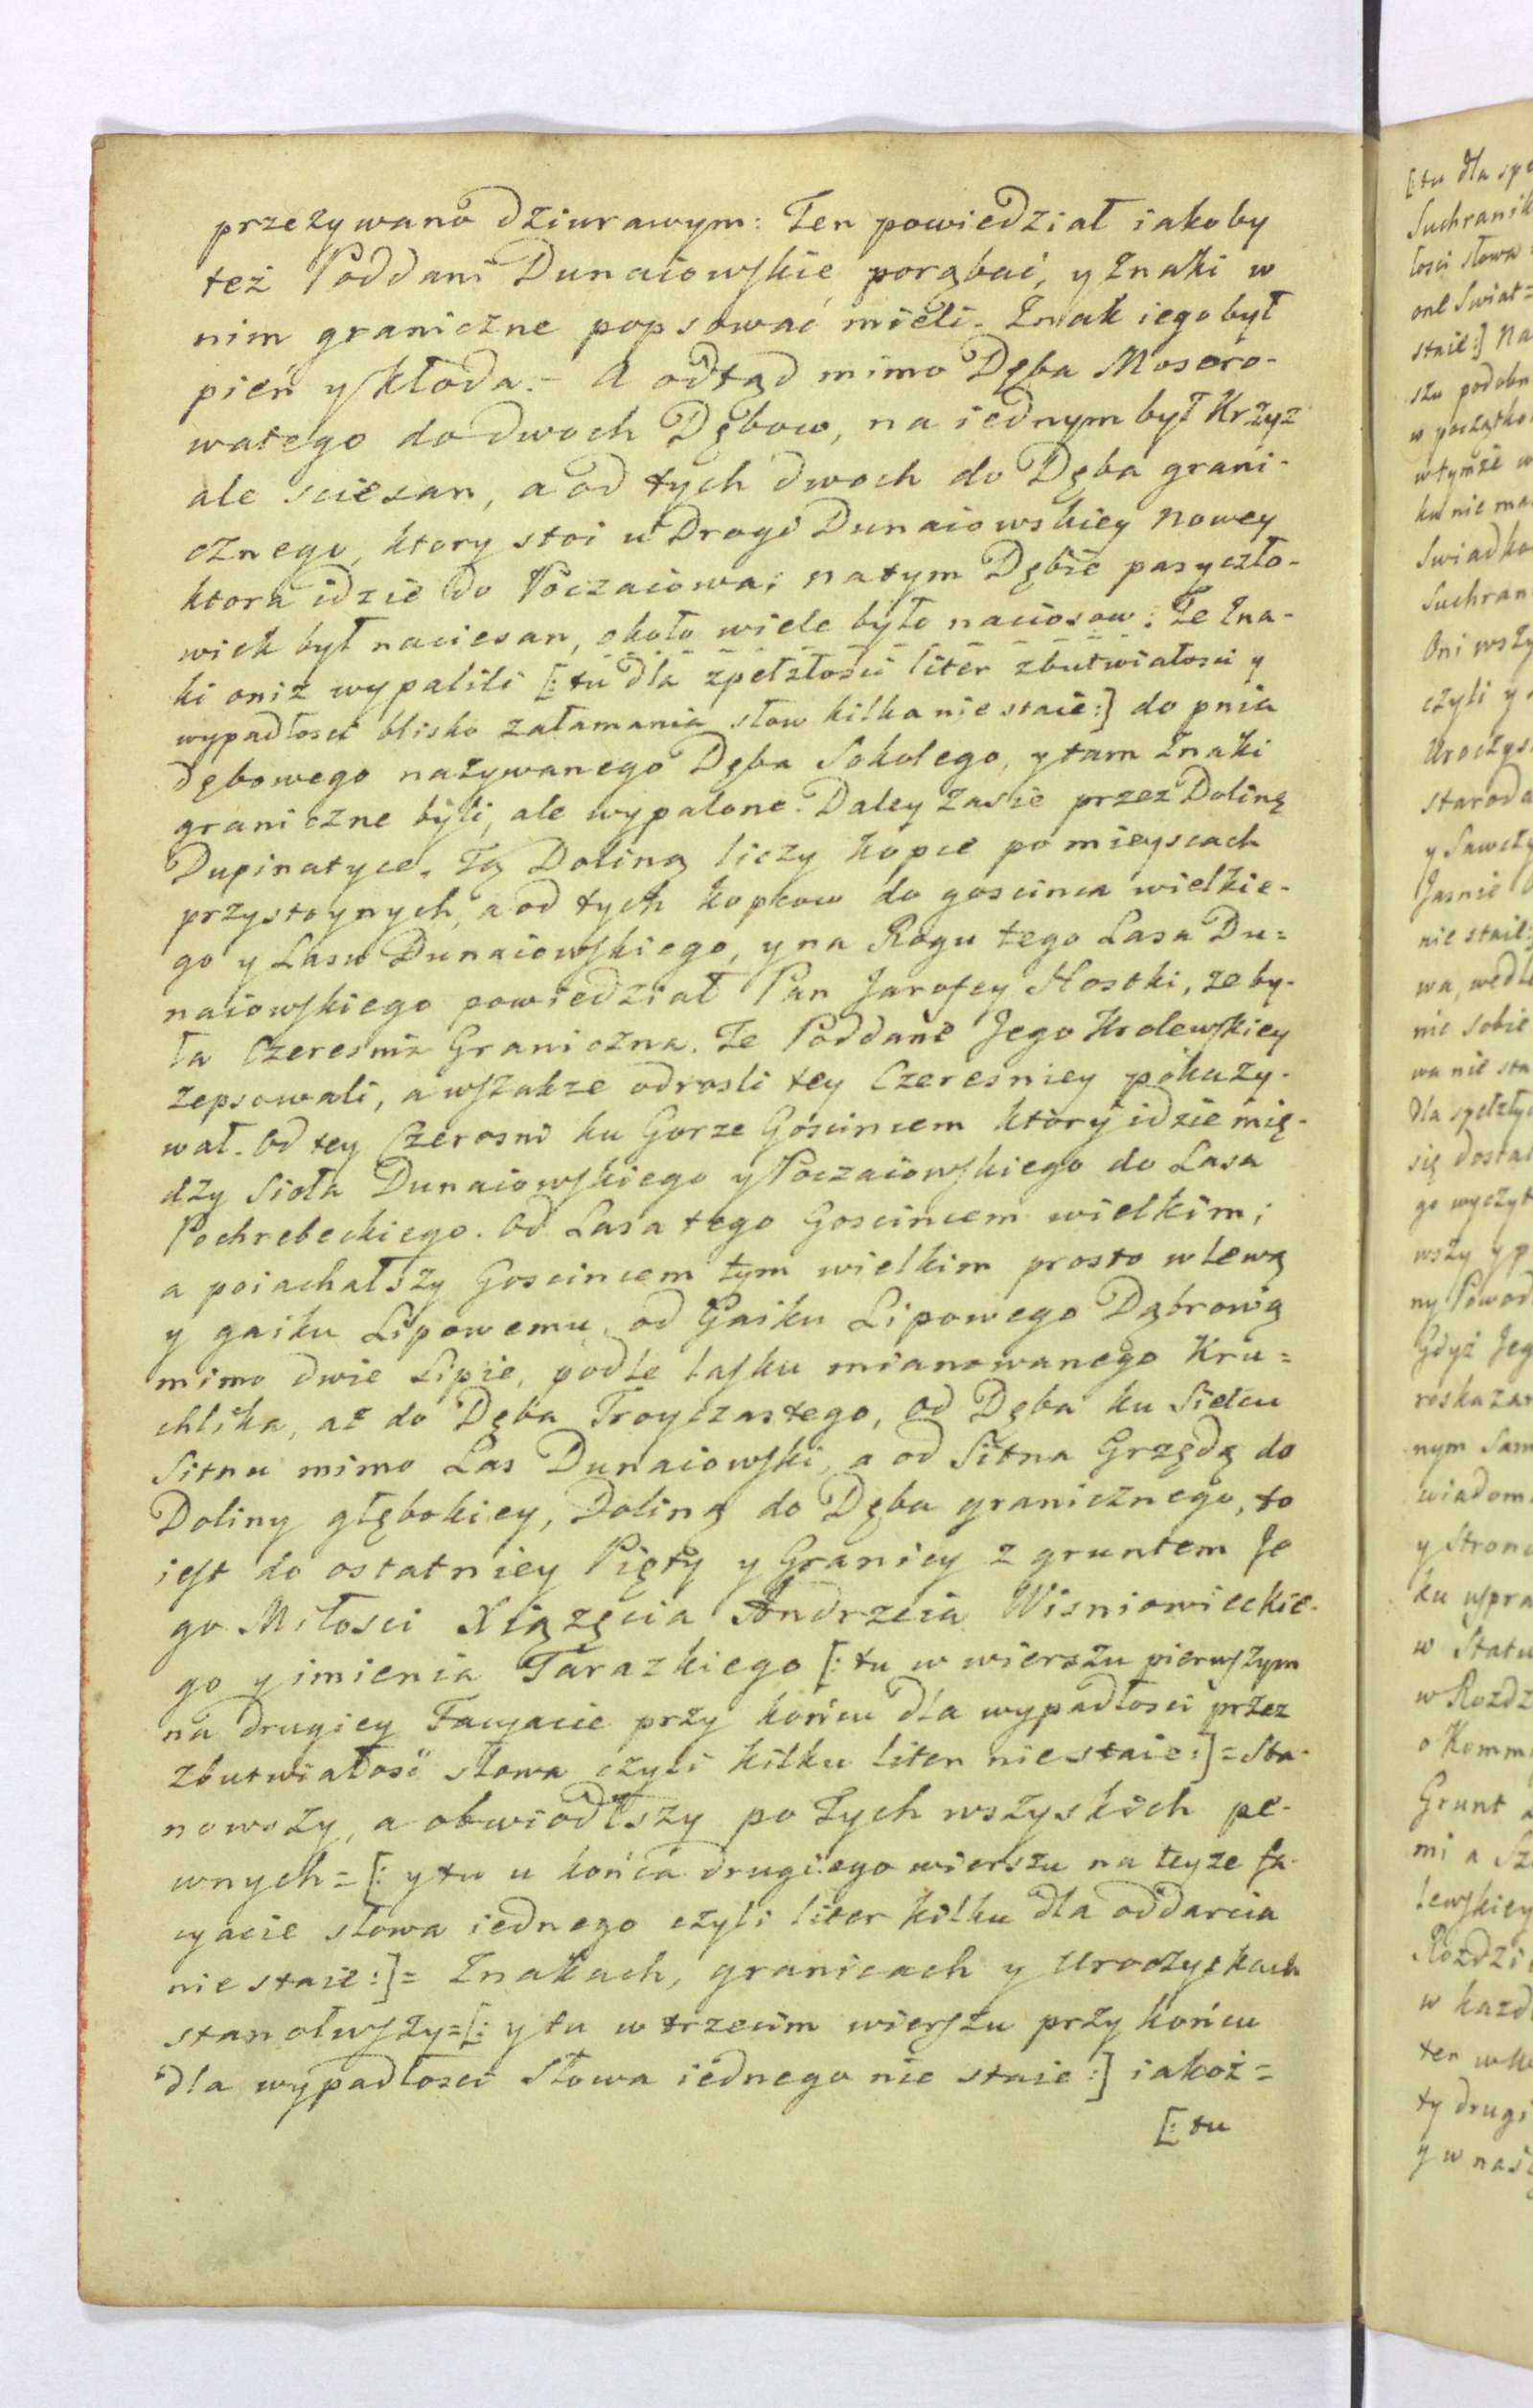 przezywano dziurawym: Ten powiedział iakoby
też Poddani Dunaiowskie porąbać, y Znaki w
nim graniczne popsować mieli. Znak iego był
pień y Kłoda.- A odtąd mimo Dęba Mosoro-
watego do dwoch Dębow, na iednym był Krzyz
ale sciesan, a od tych dwoch do Dęba grani-
cznego, ktory stoi u Drogi Dunaiowskiey nowey
ktora idzie do Poczaiowa; na tym Dębie pasyczło-
wick był naciesan, około wiele było naciosow: Te Zna-
ki oniz wypalili [: tu dla zpełzłosci liter zbutwiałosci y
wypadłosci blisko załamania słow kilka nie staie:] do pnia
dębowego nazywanego Dęba Sokolego, y tam Znaki
graniczne byli, ale wypalone. Daley zasie przez Dolinę
Dupinatyce. Tą Doliną liczy kopce po mieyscach
przystoynych, a od tych kopcow do goscinca wielkie-
go y Lasu Dunaiowskiego, y na Rogu tego Lasa Du=
naiowskiego powiedział Pan Jarofey Hostki, ze by-
ła Czeresnia Graniczna. Te Poddane Jego Krolewskiey
zepsowali, a wszakze odrosli tey Czeresniey pokazy-
wał. Od tey Czerosni ku Gorze Goscincem ktory idzie mię-
dzy Sioła Dunaiowskiego y Poczaiowskiego do Lasa
Pochrebeckiego. Od Lasa tego Goscincem wielkim;
a poiachałszy Goscincem tym wielkim prosto w lewą
y gaiku Lipowemu, od Gaiku Lipowego Dąbrową
mimo dwie Lipie, podle lasku mianowanego Kru=
chlika, aż do Dęba Troyczastego, od Dęba ku Sielcu
Sitnu mimo Las Dunaiowski, a od Sitna Grzędą do
Doliny głębokiey, Doliną do Dęba granicznego, to
iest do ostatniey Pięty y Granicy z gruntem Je
go Miłosci Xiążęcia Andrzeia Wisniowieckie-
go y imienia Tarazkiego [: tu w wierszu pierwszym
na drugiey Facyacie przy końcu dla wypadłosci przez
zbutwiałość słowa czyli kilku liter nie staie:] = Sta-
nowszy, a obwiodłszy po tych wszyskich pe-
wnych = [: y tu u końca drugiego wierszu na teyze fa-
cyacie słowa iednego czyli liter kilku dla oddarcia
nie staie:] = Znakach, granicach y Uroczyskach
stanołwszy = [: y tu w trzecim wierszu przy końcu
dla wypadłosci Słowa iednego nie staie:] iakoż =
[: tu
[: tu dla spe
Suchranik
łosci słowa
one Swiat=
staie:] Na
szu podobn
w początko
w tymże w
ku nie ma
Swiadko
Suchran
Oni wszy
czyli y
Uroczys
staroda
y Sawczy
Jasnie
nie staie:
wa, wedle
nie sobie
wa nie sta
dla spełzły
się dostai
go wyczyt
wszy y p
ny Powod
Gdyż Jeg
roskazan
nym Sam
wiadom
y Stron
ku uspra
w Statu
w Rozdz
o Komm
Grunt
mi a Sz
lewskiey
Rozdzi
w każd
ten
ty drugi
y w nasi